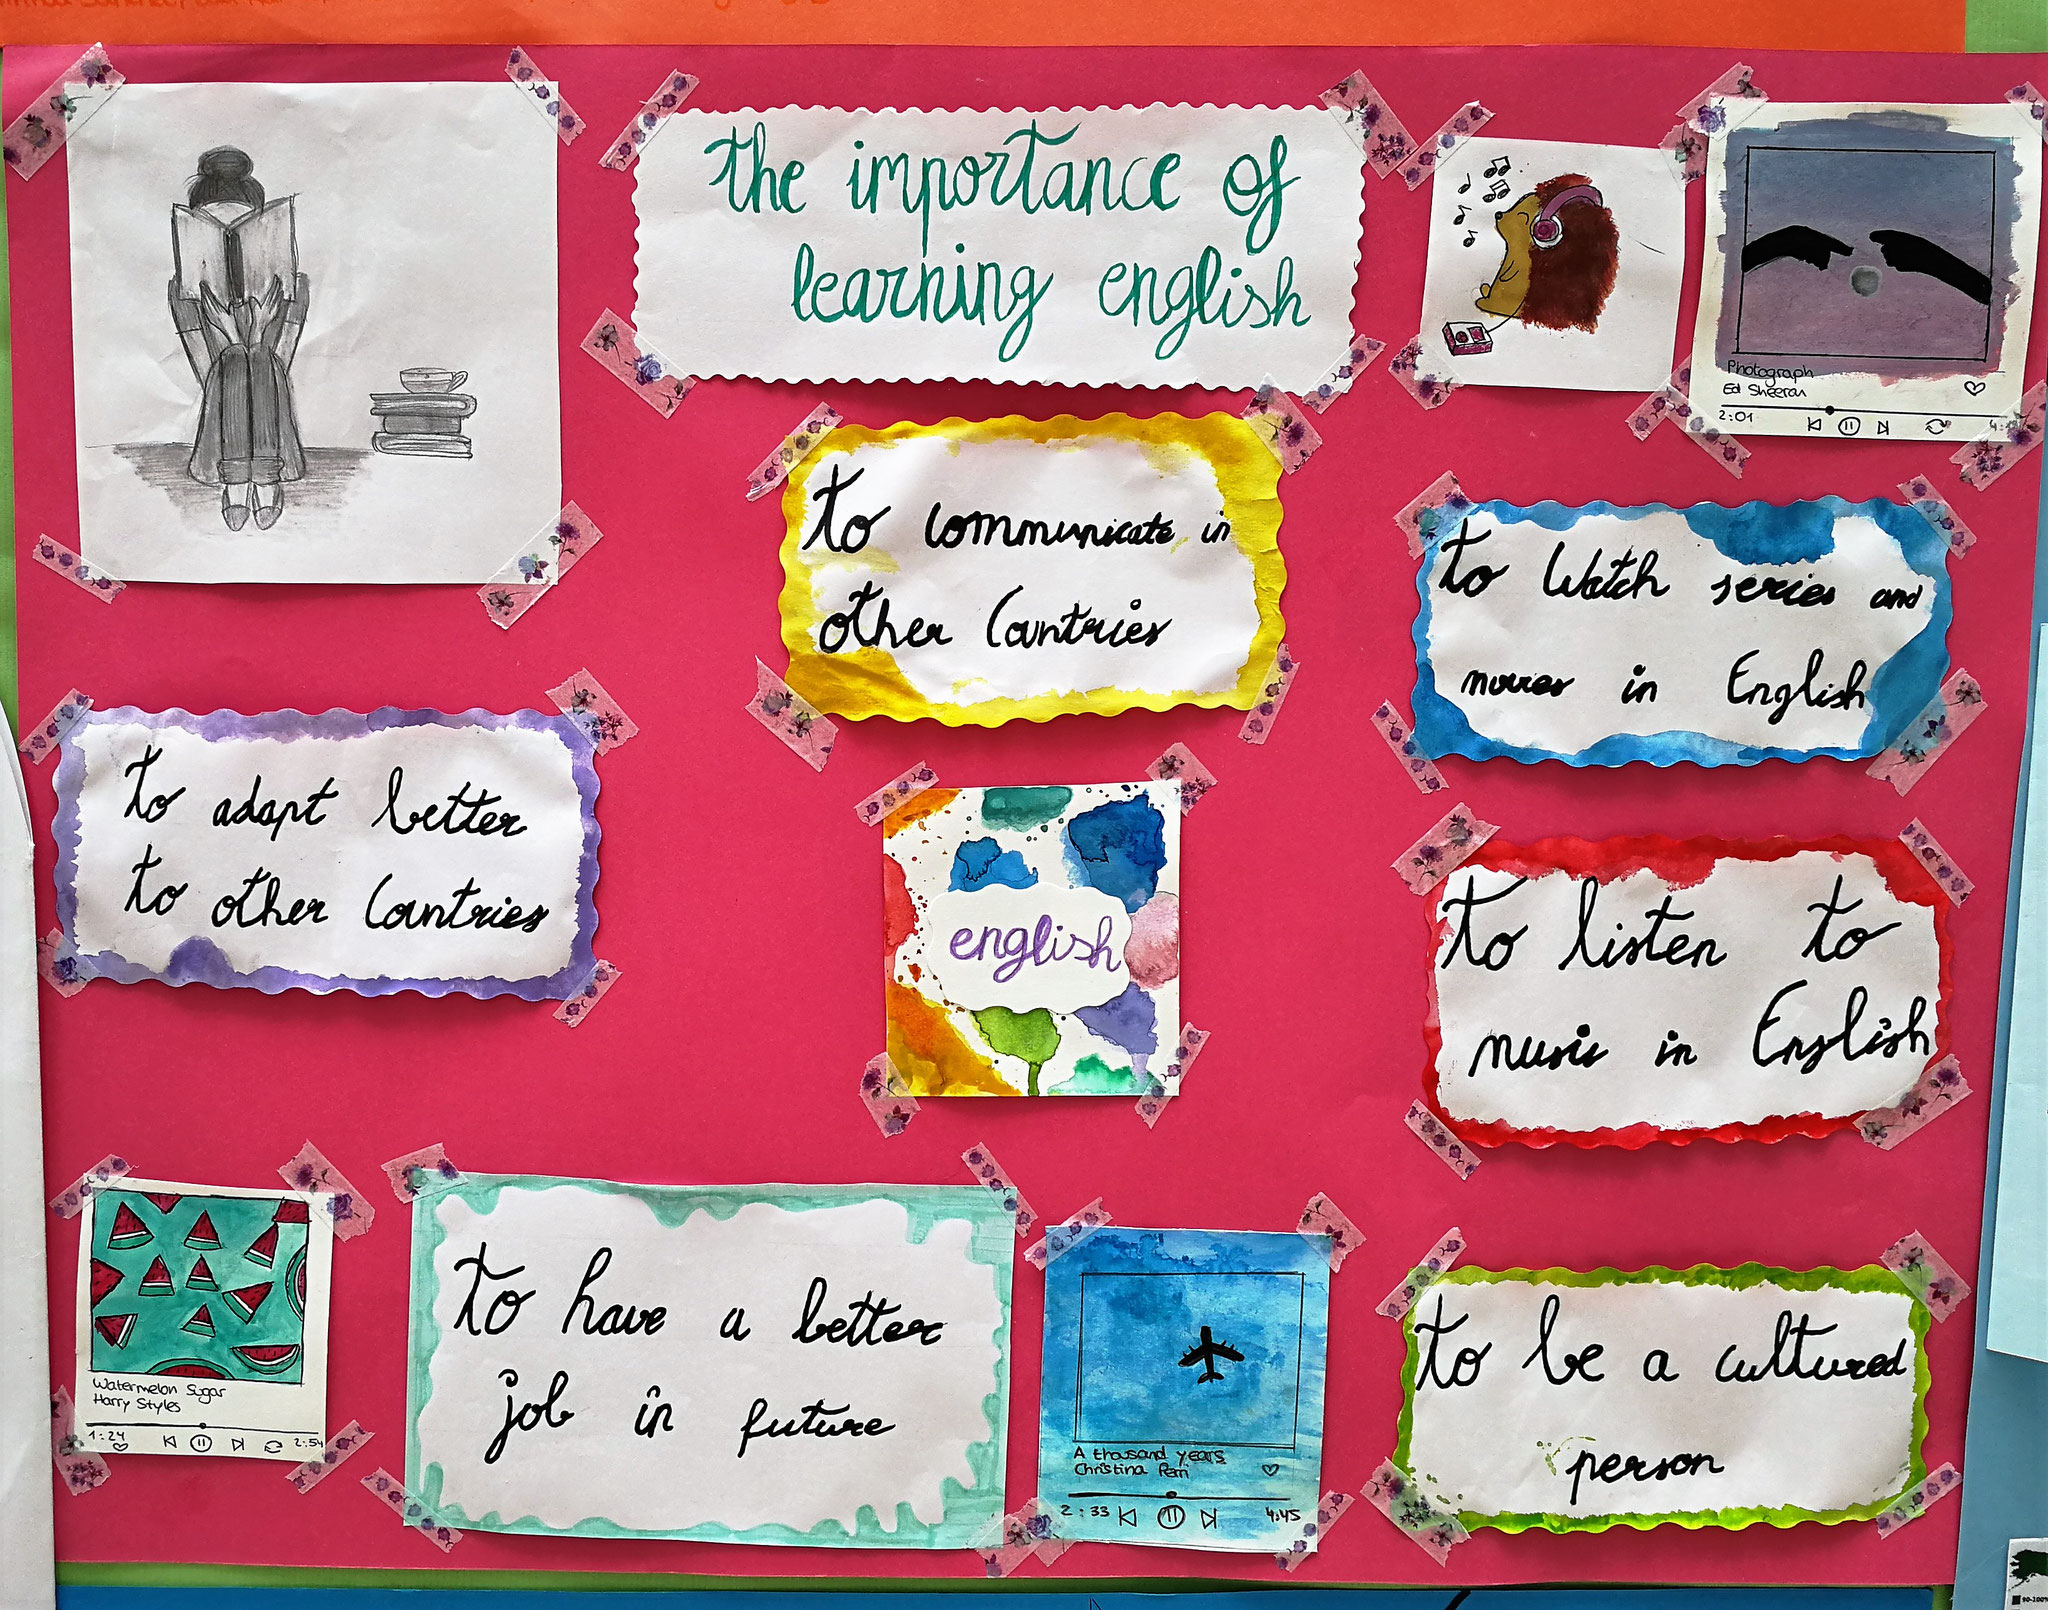 the importance of
learning english
Photograph
Ed Sheeran
2:01
to communicate in
other Countries
to Watch series and
movies in English
to adapt better
to other Countries
english
to listen to
music in English
Watermelon Sugar
Harry Styles
1:24 2:54
to have a better
job in future
A thousand years
Christina Perri
2:33 4:45
to be a cultured
person
90-100%